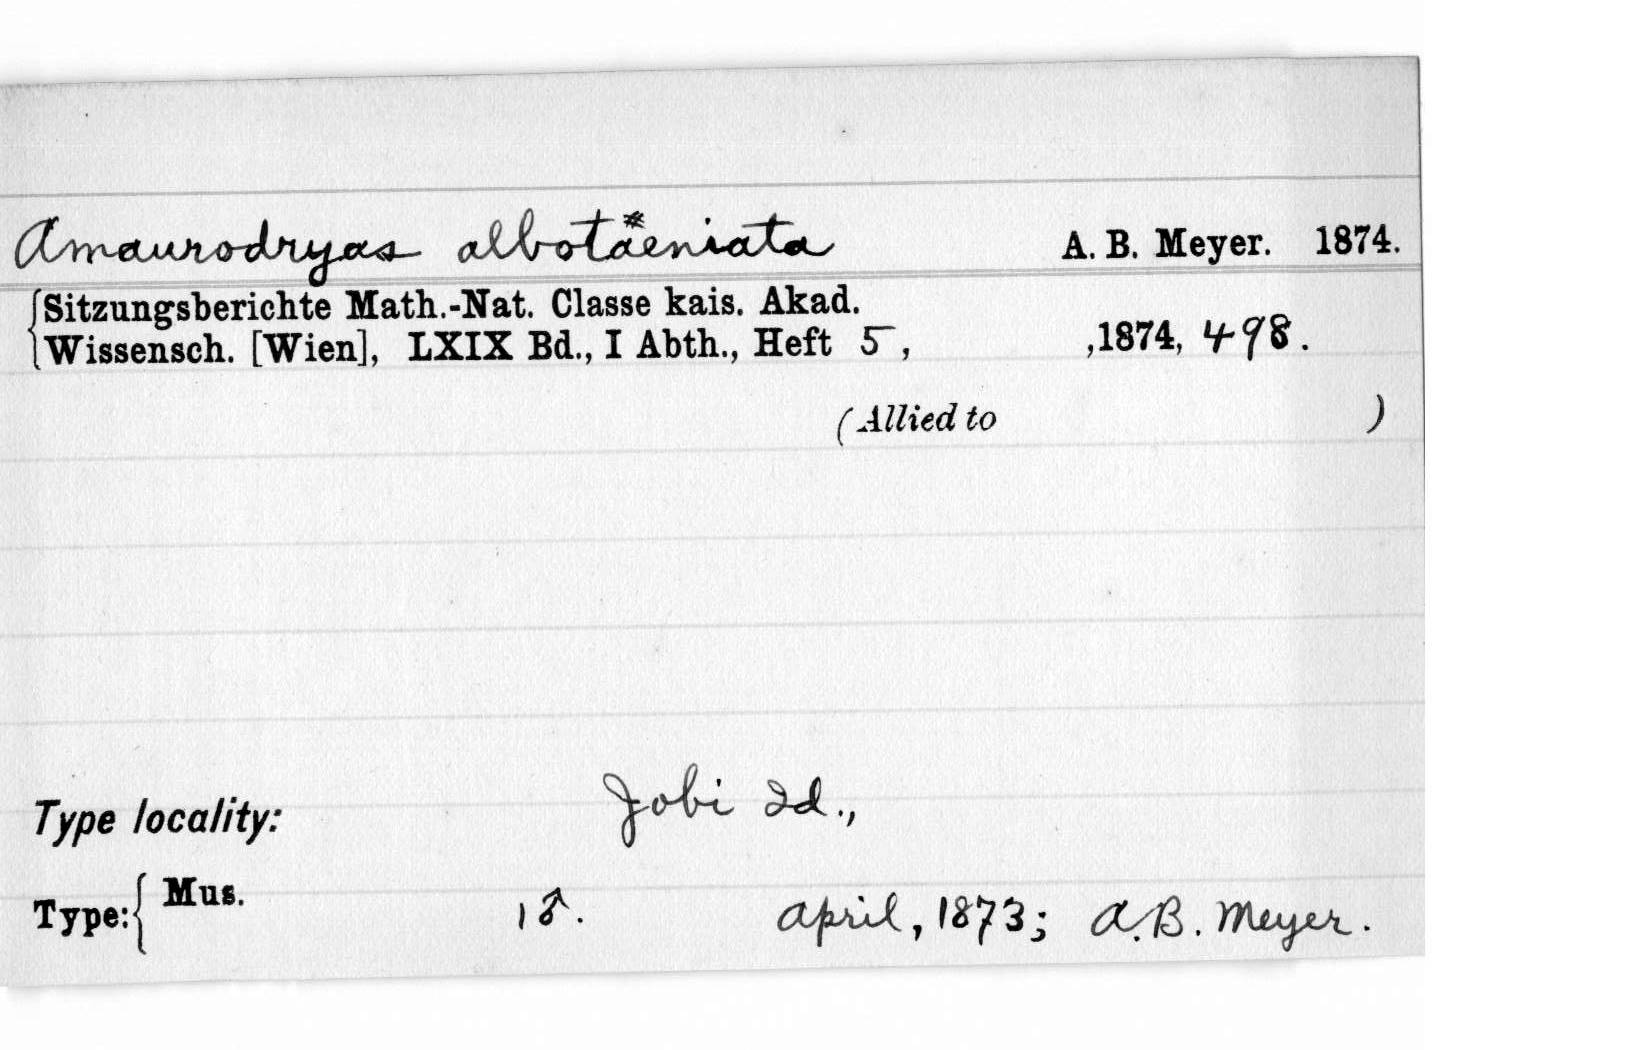 Amaurodryas albotaeniata A. B. Meyer. 1874.
Sitzungsberichte Math.-Nat. Classe kais. Akad.
Wissensch. [Wien], LXIX Bd., I Abth., Heft 5, ,1874, 498.
(Allied to )
Type locality: Jobi Id.,
Type: { Mus. 1♂. April, 1873; A.B. Meyer.